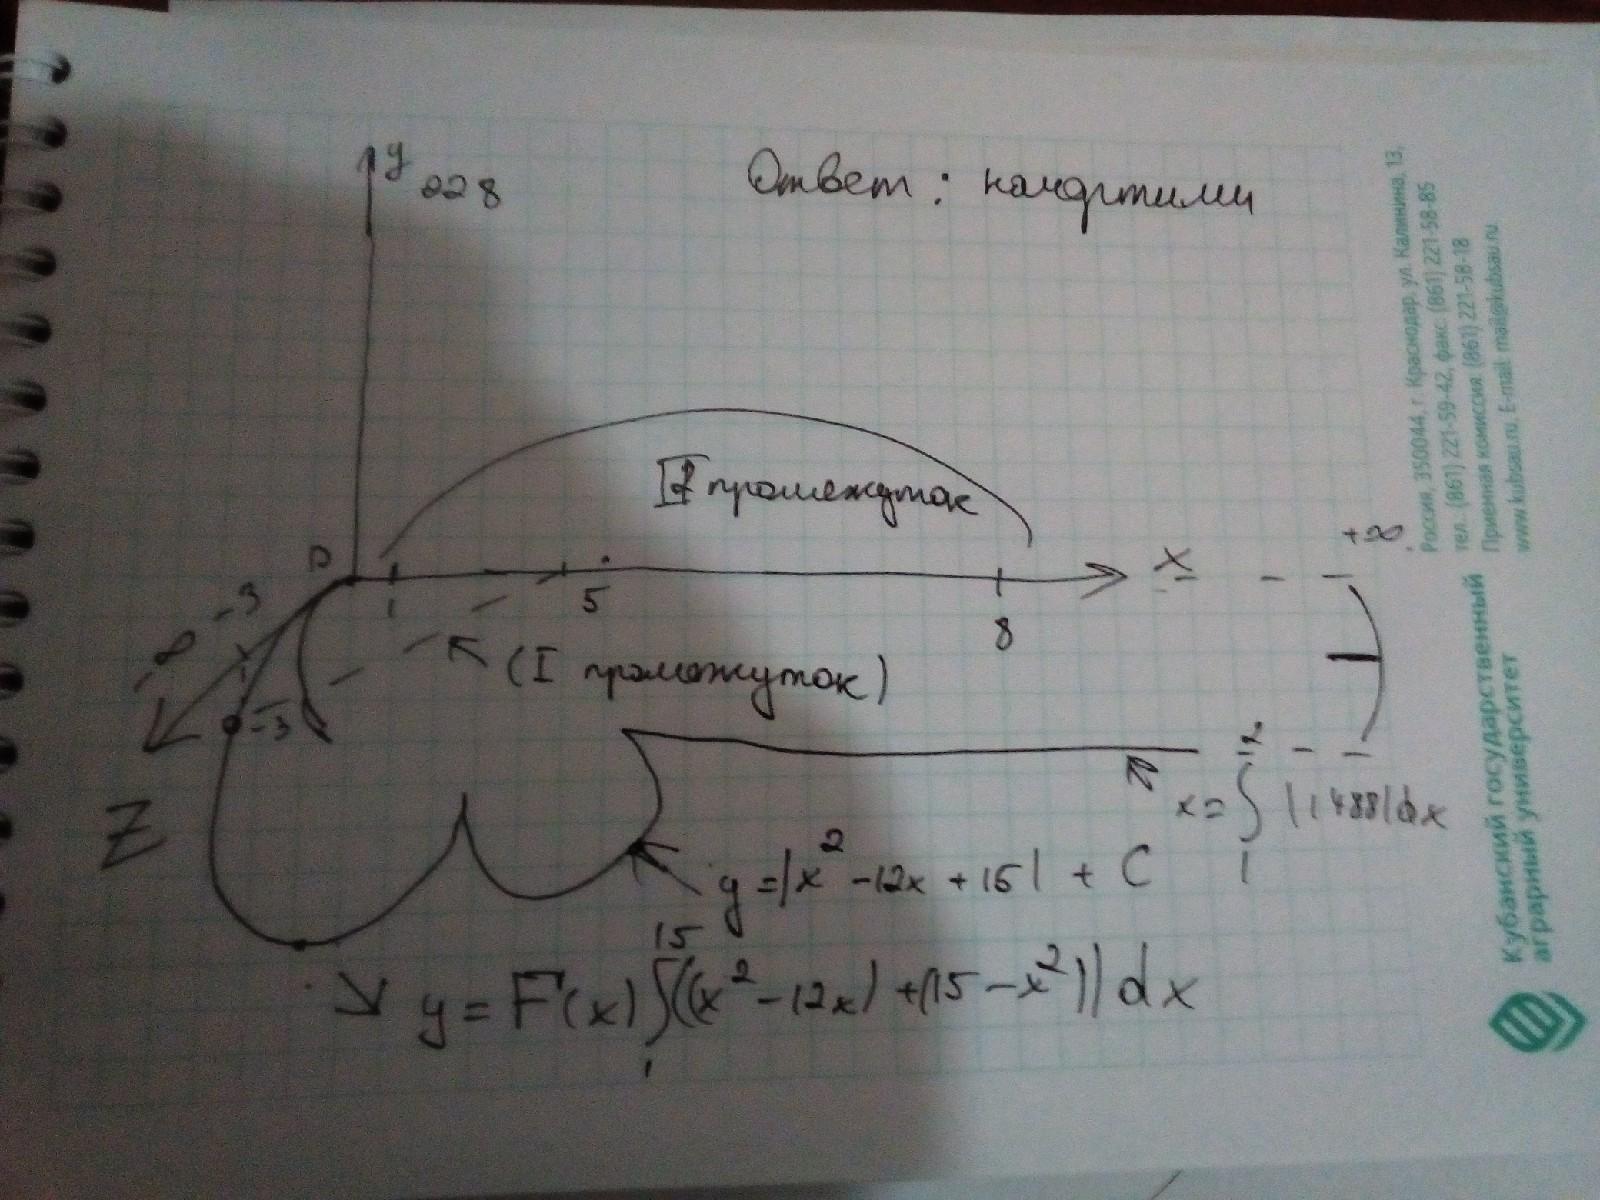 y
228
Ответ:
0
1
5
8
x
+∞
II промежуток
-3
-∞
(I промежуток)
-3
Z
2
x = ∫ |1488|dx
1
y = |x² - 12x + 15| + C
15
y = F(x) ∫((x² - 12x) + (15 - x²)) dx
1
Кубанский государственный
аграрный университет
Россия, 350044, г. Краснодар, ул. Калинина, 13,
тел. (861) 221-59-42, факс: (861) 221-58-85
Приемная комиссия: (861) 221-58-18
www.kubsau.ru, E-mail: mail@kubsau.ru